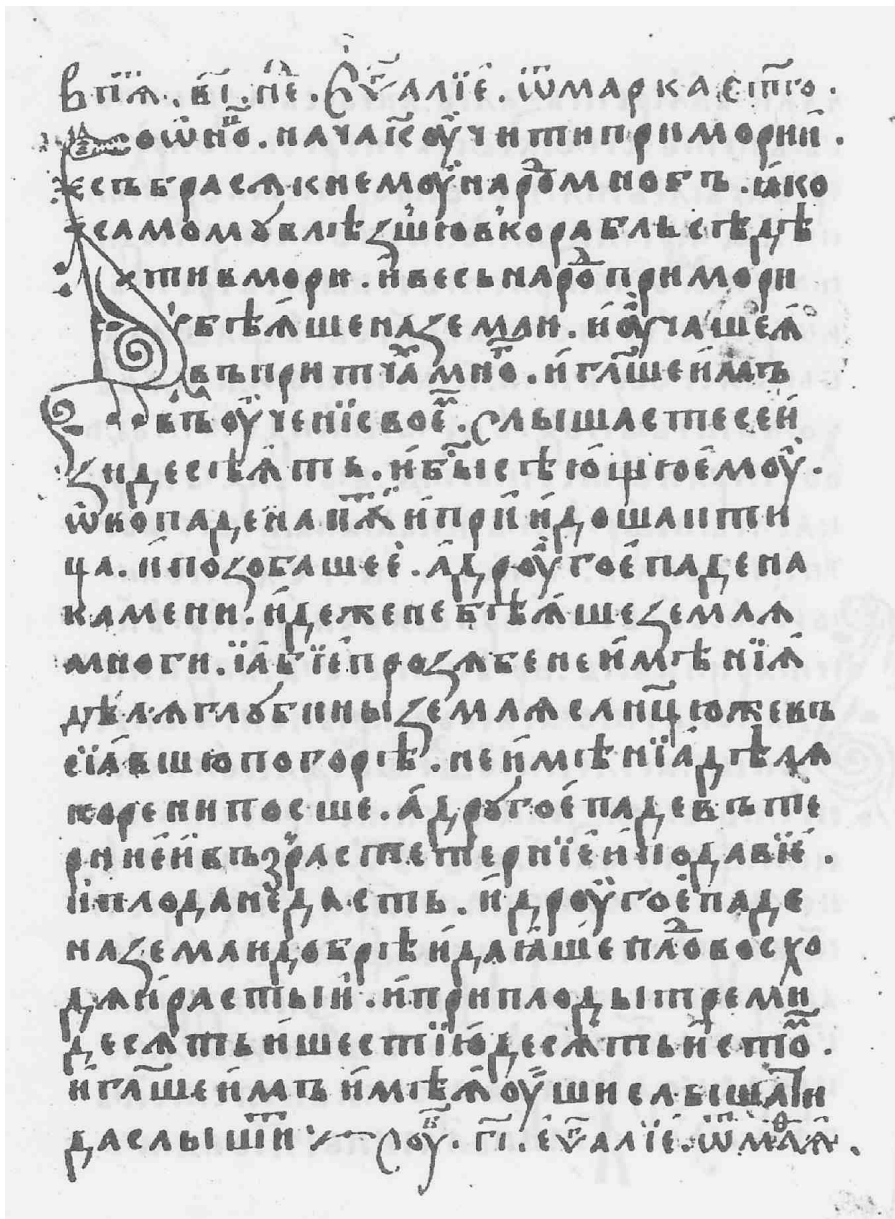 в пїѧ . в҃і . не҃ . Єѵ҃алїе . ѿ марка ст҃го .
ѡно . нача їс оу҆чити при мори и҆ .
събрасѧ к немоу҆ наро многъ . ꙗко
самомꙋ влѣзшю в корабль сѣдѣ
ти в мори . и҆ весь наро при мори
бѣѧше на земли . и҆ оу҆чаше ѧ
въ притча мно . и҆ гл҃аше и҆мъ
въ оу҆ченїи свое . слышасте се и҆
зиде сѣѧть . и҆ бы сѣю҆щю е҆моу҆ .
ѡ҆ко паде на пꙋти и҆ прїидоша пти
ца . и҆ позобаше е҆ . а҆ дроу҆гое҆ паде на
камени и҆деже не бѣѧше землѧ
многи . їабїе прозѧбе не и҆мѣнїѧ
дѣлѧ глꙋбины землѧ слнцю же въ
сїавшю погорѣ . не и҆мѣнїа дѣлѧ
корени посше . а҆ дрꙋгое҆ паде въ те
рние и҆ възрасте терние и҆ подави е҆ .
и҆ плода не дасть . и҆ дроу҆гое҆ паде
на земли добрѣ и҆ даꙗ҆ше пло восхо
дѧ и҆ растыи . и҆ приплоды три ми
десѧть и҆ шестїю҆десѧть и҆ сто .
и҆ гл҃аше и҆мъ и҆мѣѧ҆ оу҆ши слышати
да слыши оу҆ . г҃і . є҆ѵ҃алїе . ѿ